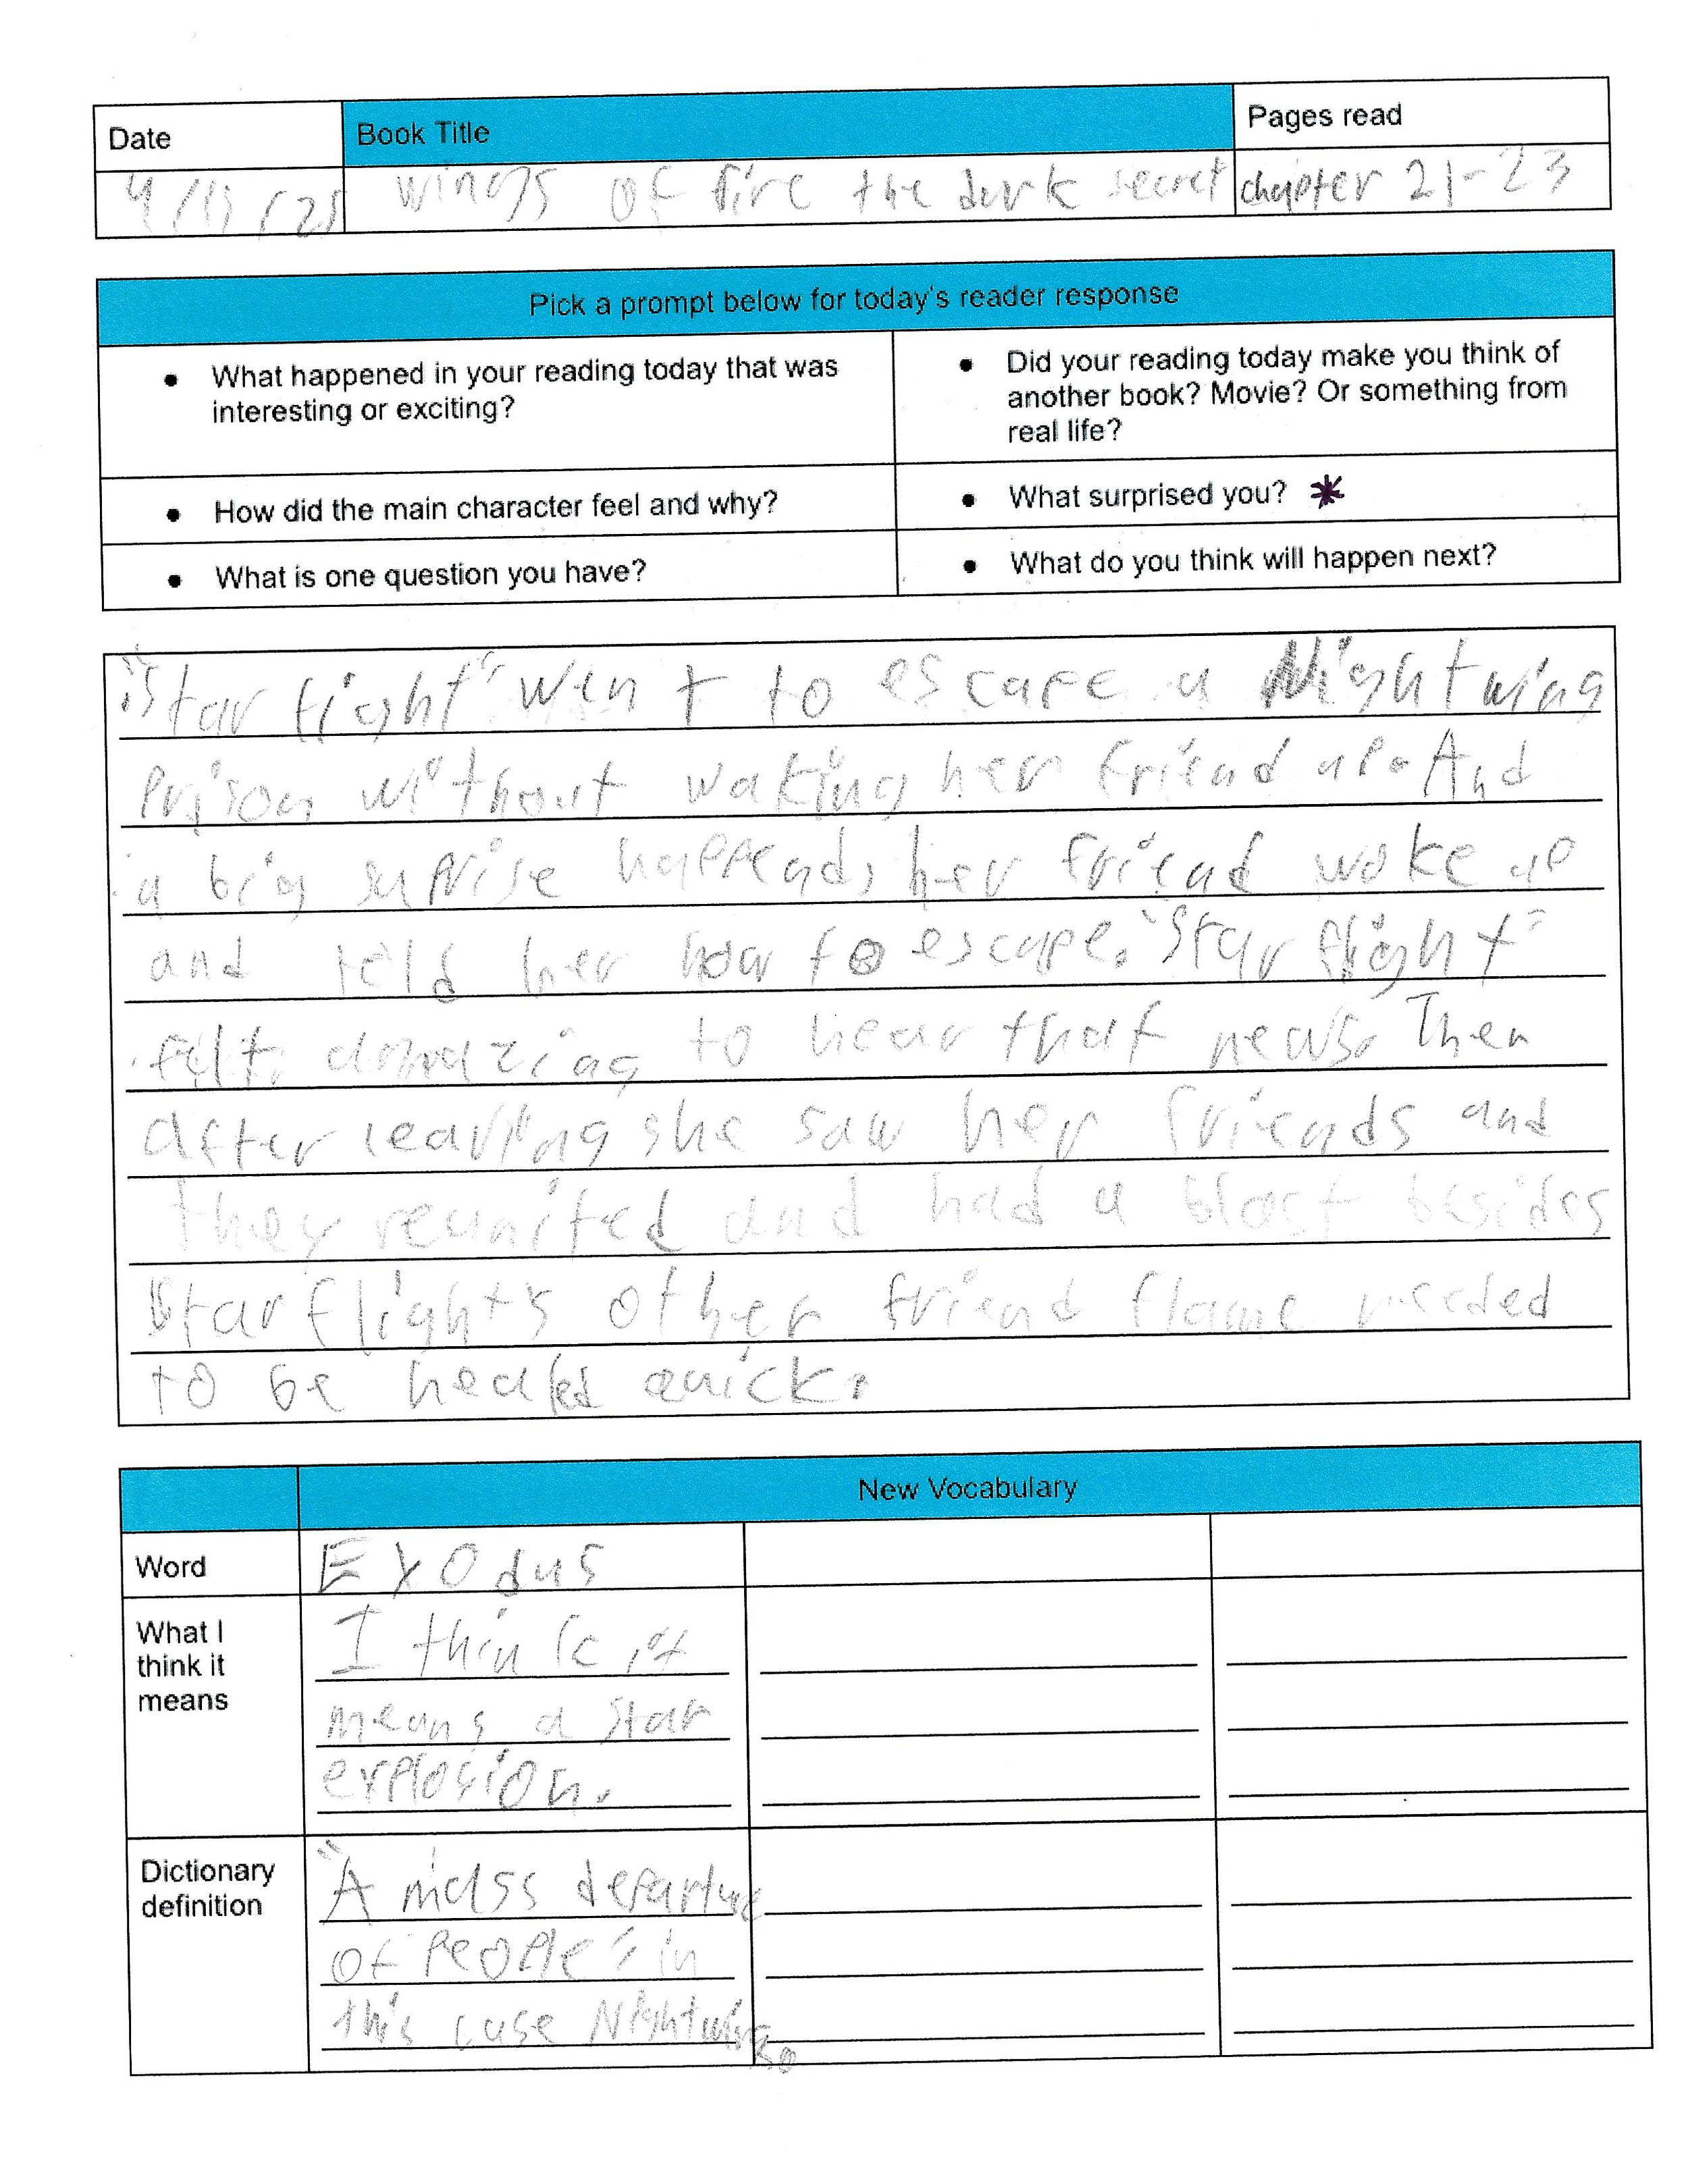 Date Book Title Pages read
wings of fire the dark secret chapter 21-23
Pick a prompt below for today's reader response
• What happened in your reading today that was
interesting or exciting?
• Did your reading today make you think of
another book? Movie? Or something from
real life?
• How did the main character feel and why?
• What surprised you? *
• What is one question you have?
• What do you think will happen next?
"Star flight" went to escape a Nightwing
Prison without waking her friend up. And
a big suprise happends, her friend woke up
and told her how to escape. "Star flight"
felt amazing to hear that news. Then
after leaving she saw her friends and
they reunited and had a blast besides
Starflights other friend flame needed
to be healed quick.
New Vocabulary
Word Exodus
What I
think it
means
I think it
means a star
explosion.
Dictionary
definition
"A mass departure
of People" in
this case Nightwings.